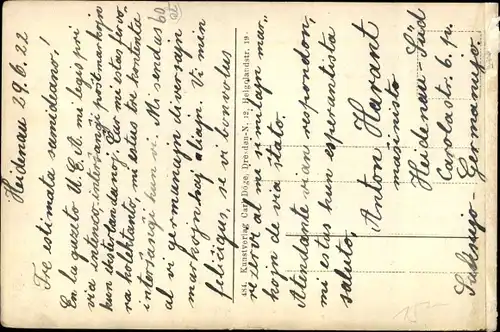 Heidenau 29.6.22
Tre estimata samideano!
En la gazeto U.E.A. mi legis pri
via intenco, interŝanĝi poŝtmarkojn
kun eksterlandanoj. Ĉar mi estas fervo-
ra kolektanto, mi estus tre kontenta
interŝanĝi kun vi. Mi sendus
al vi germanajn diversajn
markojn kaj aliajn. Vi min
feliĉigus, se vi bonvolus
sendi al mi samilajn mar-
kojn de via ŝtato.
Atendante vian respondon,
mi estas kun esperantista
saluto,
Anton Harant
maŝinisto
Heidenau-Süd
Carolastr. 6. p.
Saksujo-Germanujo.
484. Kunstverlag Carl Döge, Dresden-N. 12, Helgolandstr. 19
60